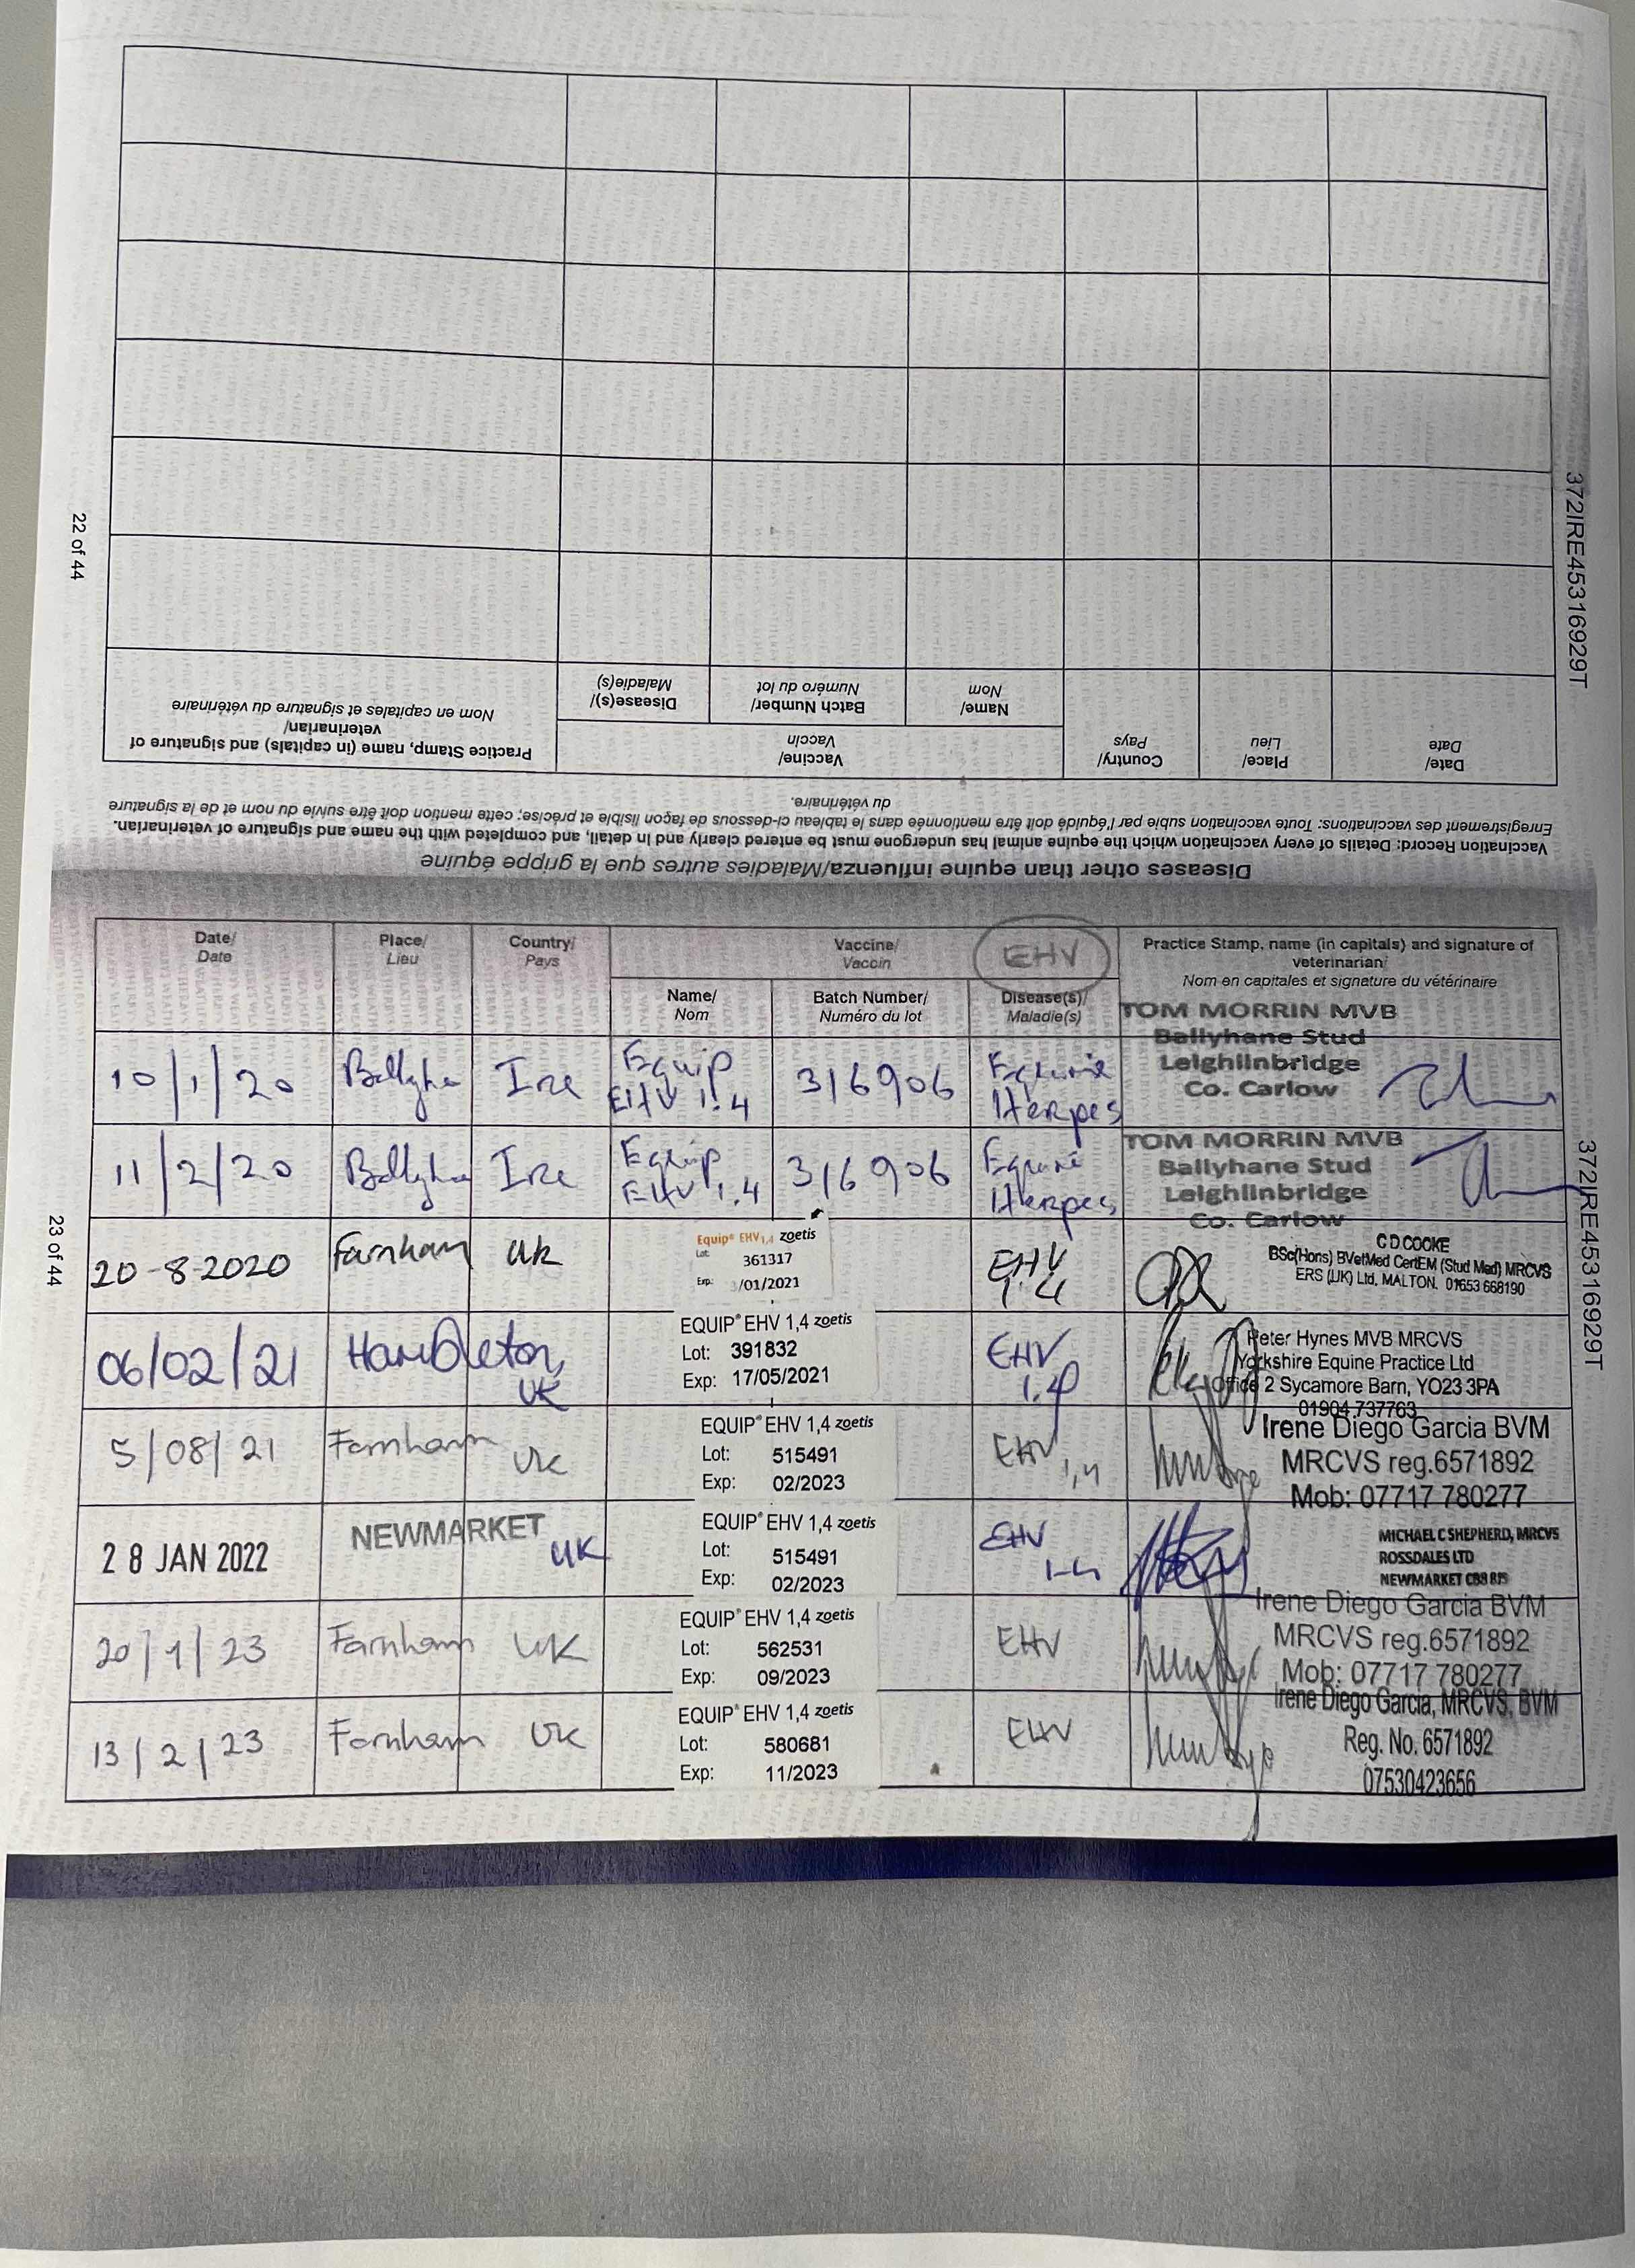 372IRE45316929T
22 of 44
Diseases other than equine influenza/Maladies autres que la grippe équine
Vaccination Record: Details of every vaccination which the equine animal has undergone must be entered clearly and in detail, and completed with the name and signature of veterinarian.
Enregistrement des vaccinations: Toute vaccination subie par l'équidé doit être mentionnée dans le tableau ci-dessous de façon lisible et précise; cette mention doit être suivie du nom et de la signature
du vétérinaire.
Date/
Date
Place/
Lieu
Country/
Pays
Vaccine/
Vaccin
Name/
Nom
Batch Number/
Numéro du lot
Disease(s)/
Maladie(s)
Practice Stamp, name (in capitals) and signature of
veterinarian/
Nom en capitales et signature du vétérinaire
372IRE45316929T
23 of 44
Date/
Date
Place/
Lieu
Country/
Pays
Vaccine/
Vaccin
EHV
Name/
Nom
Batch Number/
Numéro du lot
Disease(s)/
Maladie(s)
Practice Stamp, name (in capitals) and signature of
veterinarian/
Nom en capitales et signature du vétérinaire
10/1/20
Ire
Equip
EHV 1.4
316906
Equine
Herpes
TOM MORRIN MVB
Ballyhane Stud
Leighlinbridge
Co. Carlow
11/2/20
Ire
Equip
EHV 1.4
316906
Equine
Herpes
TOM MORRIN MVB
Ballyhane Stud
Leighlinbridge
Co. Carlow
20-8-2020
Farnham
UK
Equip® EHV 1,4 zoetis
Lot: 361317
Exp: /01/2021
EHV
1.4
C D COOKE
BSc(Hons) BVetMed CertEM (Stud Med) MRCVS
ERS (UK) Ltd, MALTON. 01653 668190
06/02/21
Hambleton,
UK
EQUIP® EHV 1,4 zoetis
Lot: 391832
Exp: 17/05/2021
EHV
1.4
Peter Hynes MVB MRCVS
Yorkshire Equine Practice Ltd
Office 2 Sycamore Barn, YO23 3PA
01904 737763
5/08/21
Farnham
UK
EQUIP® EHV 1,4 zoetis
Lot: 515491
Exp: 02/2023
EHV
1,4
Irene Diego Garcia BVM
MRCVS reg.6571892
Mob: 07717 780277
28 JAN 2022
NEWMARKET
UK
EQUIP® EHV 1,4 zoetis
Lot: 515491
Exp: 02/2023
EHV
1-4
MICHAEL C SHEPHERD, MRCVS
ROSSDALES LTD
NEWMARKET CB8 8JS
20/1/23
Farnham
UK
EQUIP® EHV 1,4 zoetis
Lot: 562531
Exp: 09/2023
EHV
Irene Diego Garcia BVM
MRCVS reg.6571892
Mob: 07717 780277
13/2/23
Farnham
UK
EQUIP® EHV 1,4 zoetis
Lot: 580681
Exp: 11/2023
EHV
Irene Diego Garcia, MRCVS, BVM
Reg. No. 6571892
07530423656